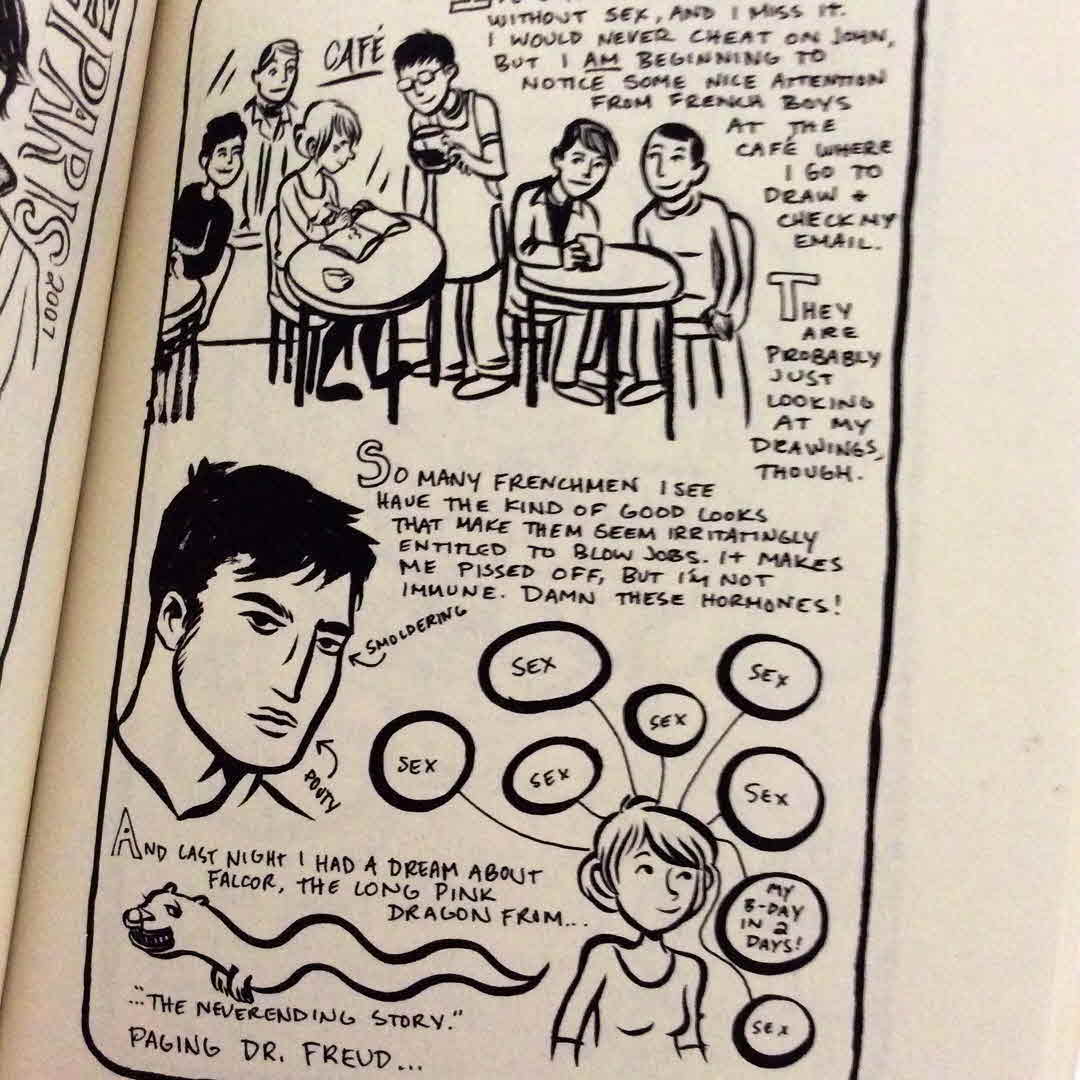 PARIS
2007
CAFÉ
WITHOUT SEX, AND I MISS IT.
I WOULD NEVER CHEAT ON JOHN,
BUT I AM BEGINNING TO
NOTICE SOME NICE ATTENTION
FROM FRENCH BOYS
AT THE
CAFÉ WHERE
I GO TO
DRAW +
CHECK MY
EMAIL.
THEY
ARE
PROBABLY
JUST
LOOKING
AT MY
DRAWINGS,
THOUGH.
SO MANY FRENCHMEN I SEE
HAVE THE KIND OF GOOD LOOKS
THAT MAKE THEM SEEM IRRITATINGLY
ENTITLED TO BLOW JOBS. IT MAKES
ME PISSED OFF, BUT I'M NOT
IMMUNE. DAMN THESE HORMONES!
SMOLDERING
POUTY
SEX
SEX
SEX
SEX
SEX
SEX
MY
B-DAY
IN 2
DAYS!
SEX
AND LAST NIGHT I HAD A DREAM ABOUT
FALCOR, THE LONG PINK
DRAGON FROM...
..."THE NEVERENDING STORY."
PAGING DR. FREUD...